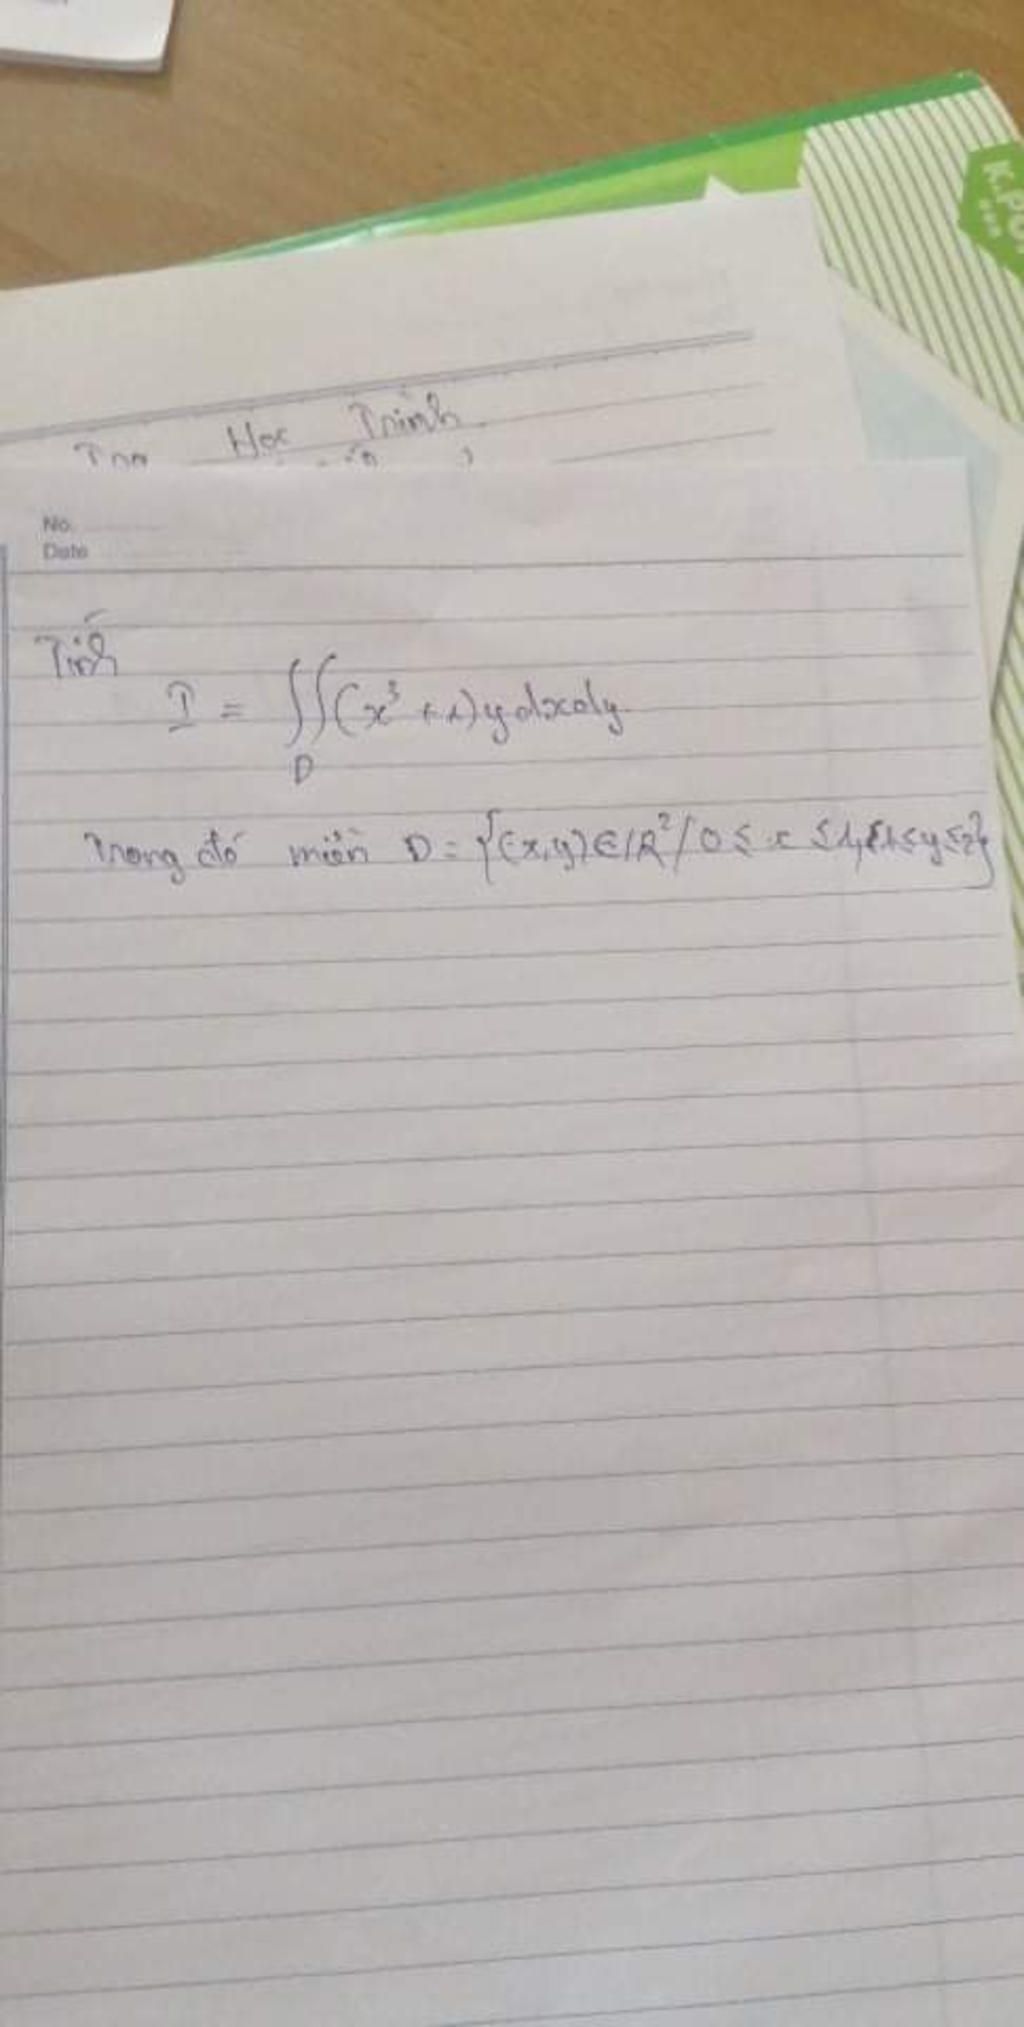 K.PO
Học Trình
No.
Date
Tính
I = ∬(x³ + 1)y dxdy
D
Trong đó miền D = {(x,y)∈IR²/0 ≤ x ≤ 1, 1 ≤ y ≤ 2}